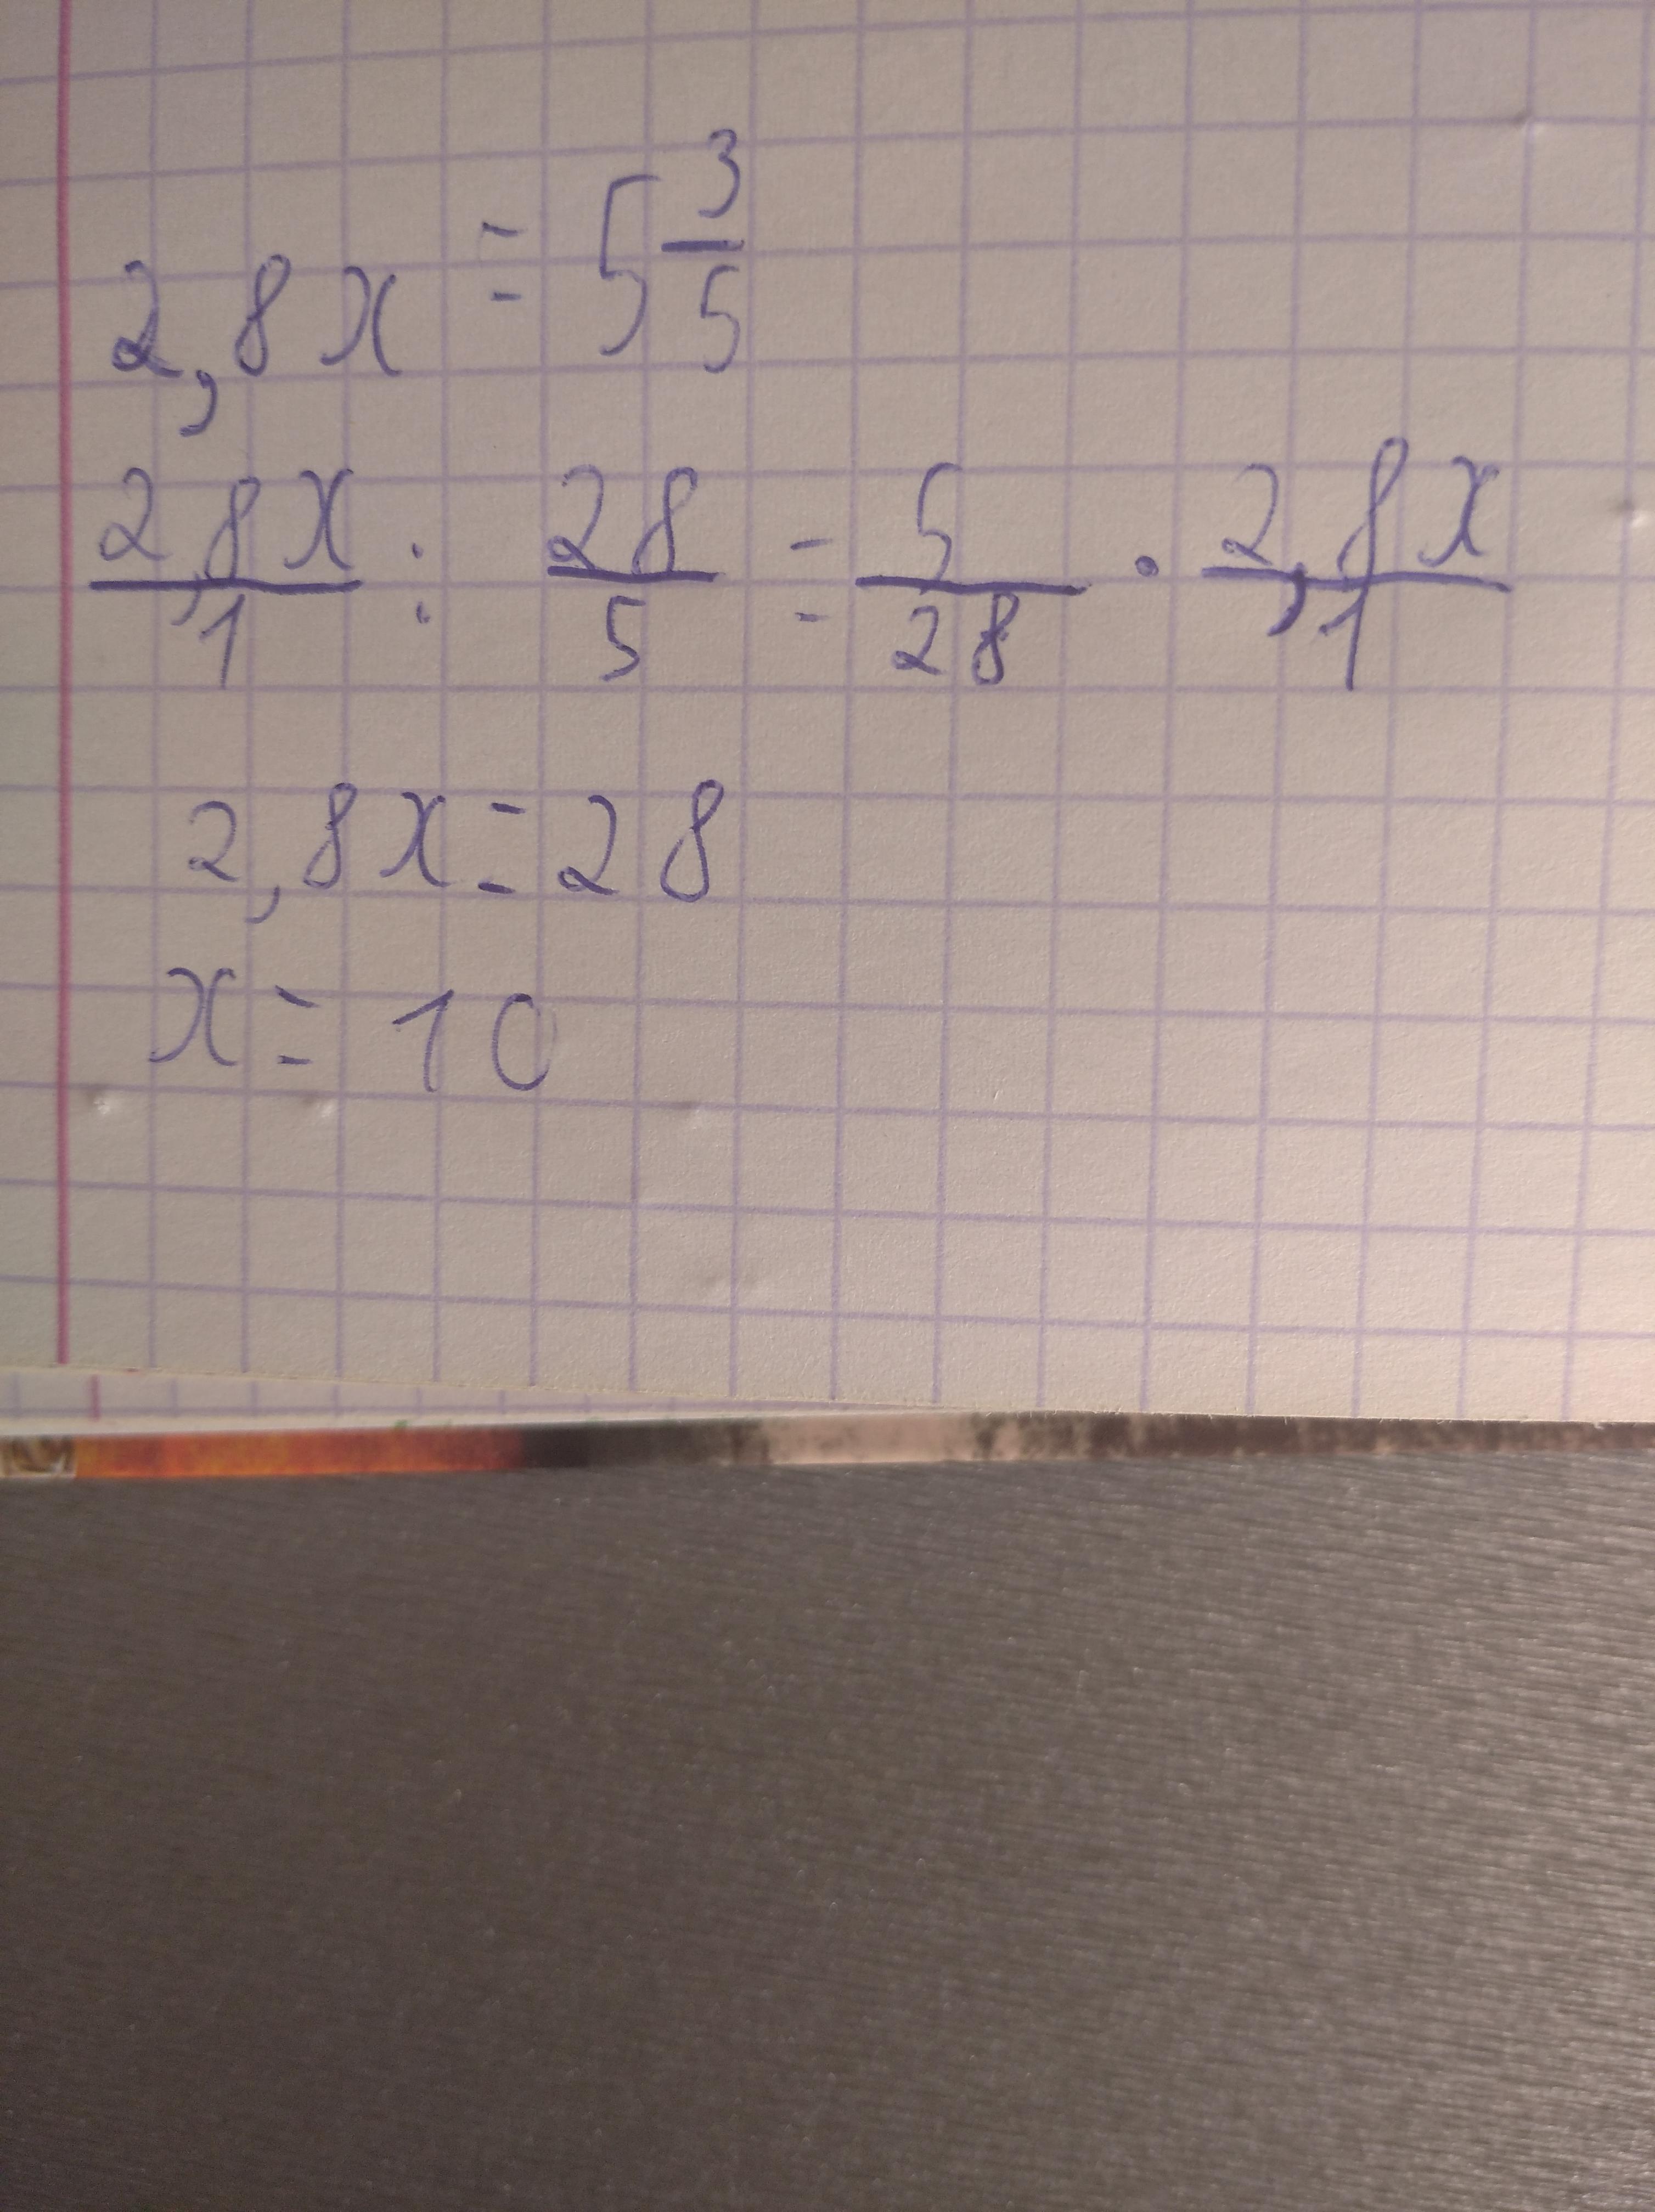 2,8x = 5 3/5
2,8x/1 : 28/5 = 5/28 · 2,8x/1
2,8x = 28
x = 10